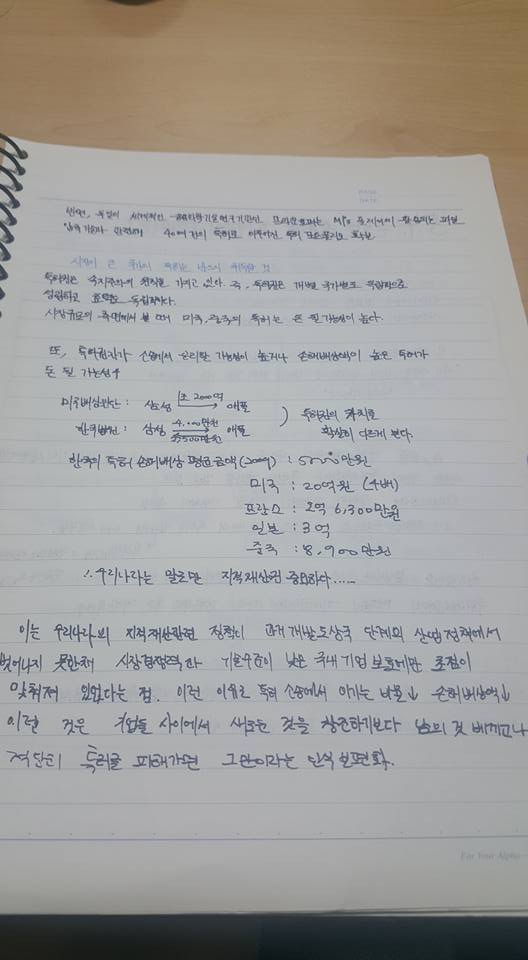 NAME
DATE
반면, 독일의 세계적인 기술연구기관인 프라운호퍼는 MP3
기술과 관련해 40여건의 특허로 이루어진 특허 포트폴리오
시장이 큰 국가의 특허는 남으며 취득할 것
특허권은 속지주의의 원칙을 가지고 있다. 즉, 특허권은 개별 국가별로 독립적으로
성립하고 효력도 독립적이다.
시장규모의 측면에서 볼 때 미국, 중국의 특허는 돈 될 가능성이 높다.
또, 특허권자가 소송에서 승리할 가능성이 높거나 손해배상액이 높은 특허가
돈 될 가능성↑
미국배심판단 : 삼성 1조 2000억 애플
한국법원 : 삼성 4,000만원 애플
) 특허권의 가치를
확실히 다르게 본다.
한국의 특허 손해배상 평균금액(2009) : 5000만원
미국 : 20억원 (4배)
프랑스 : 2억 6,300만원
일본 : 3억
중국 : 8,900만원
∴ 우리나라는 말로만 지적재산권 중요하다.....
이는 우리나라의 지적재산관련 정책이 과거 개발도상국 단계의 산업정책에서
벗어나지 못한채 시장경쟁력과 기술수준이 낮은 국내기업 보호에만 초점이
맞춰져 있었다는 점. 이런 이유로 특허 소송에서 이기는 비율↓ 손해배상액↓
이런 것은 기업들 사이에서 새로운 것을 창조하기보다 남의 것 베끼고나
적당히 특허를 피해가면 그만이라는 인식 보편화.
For Your Alpha